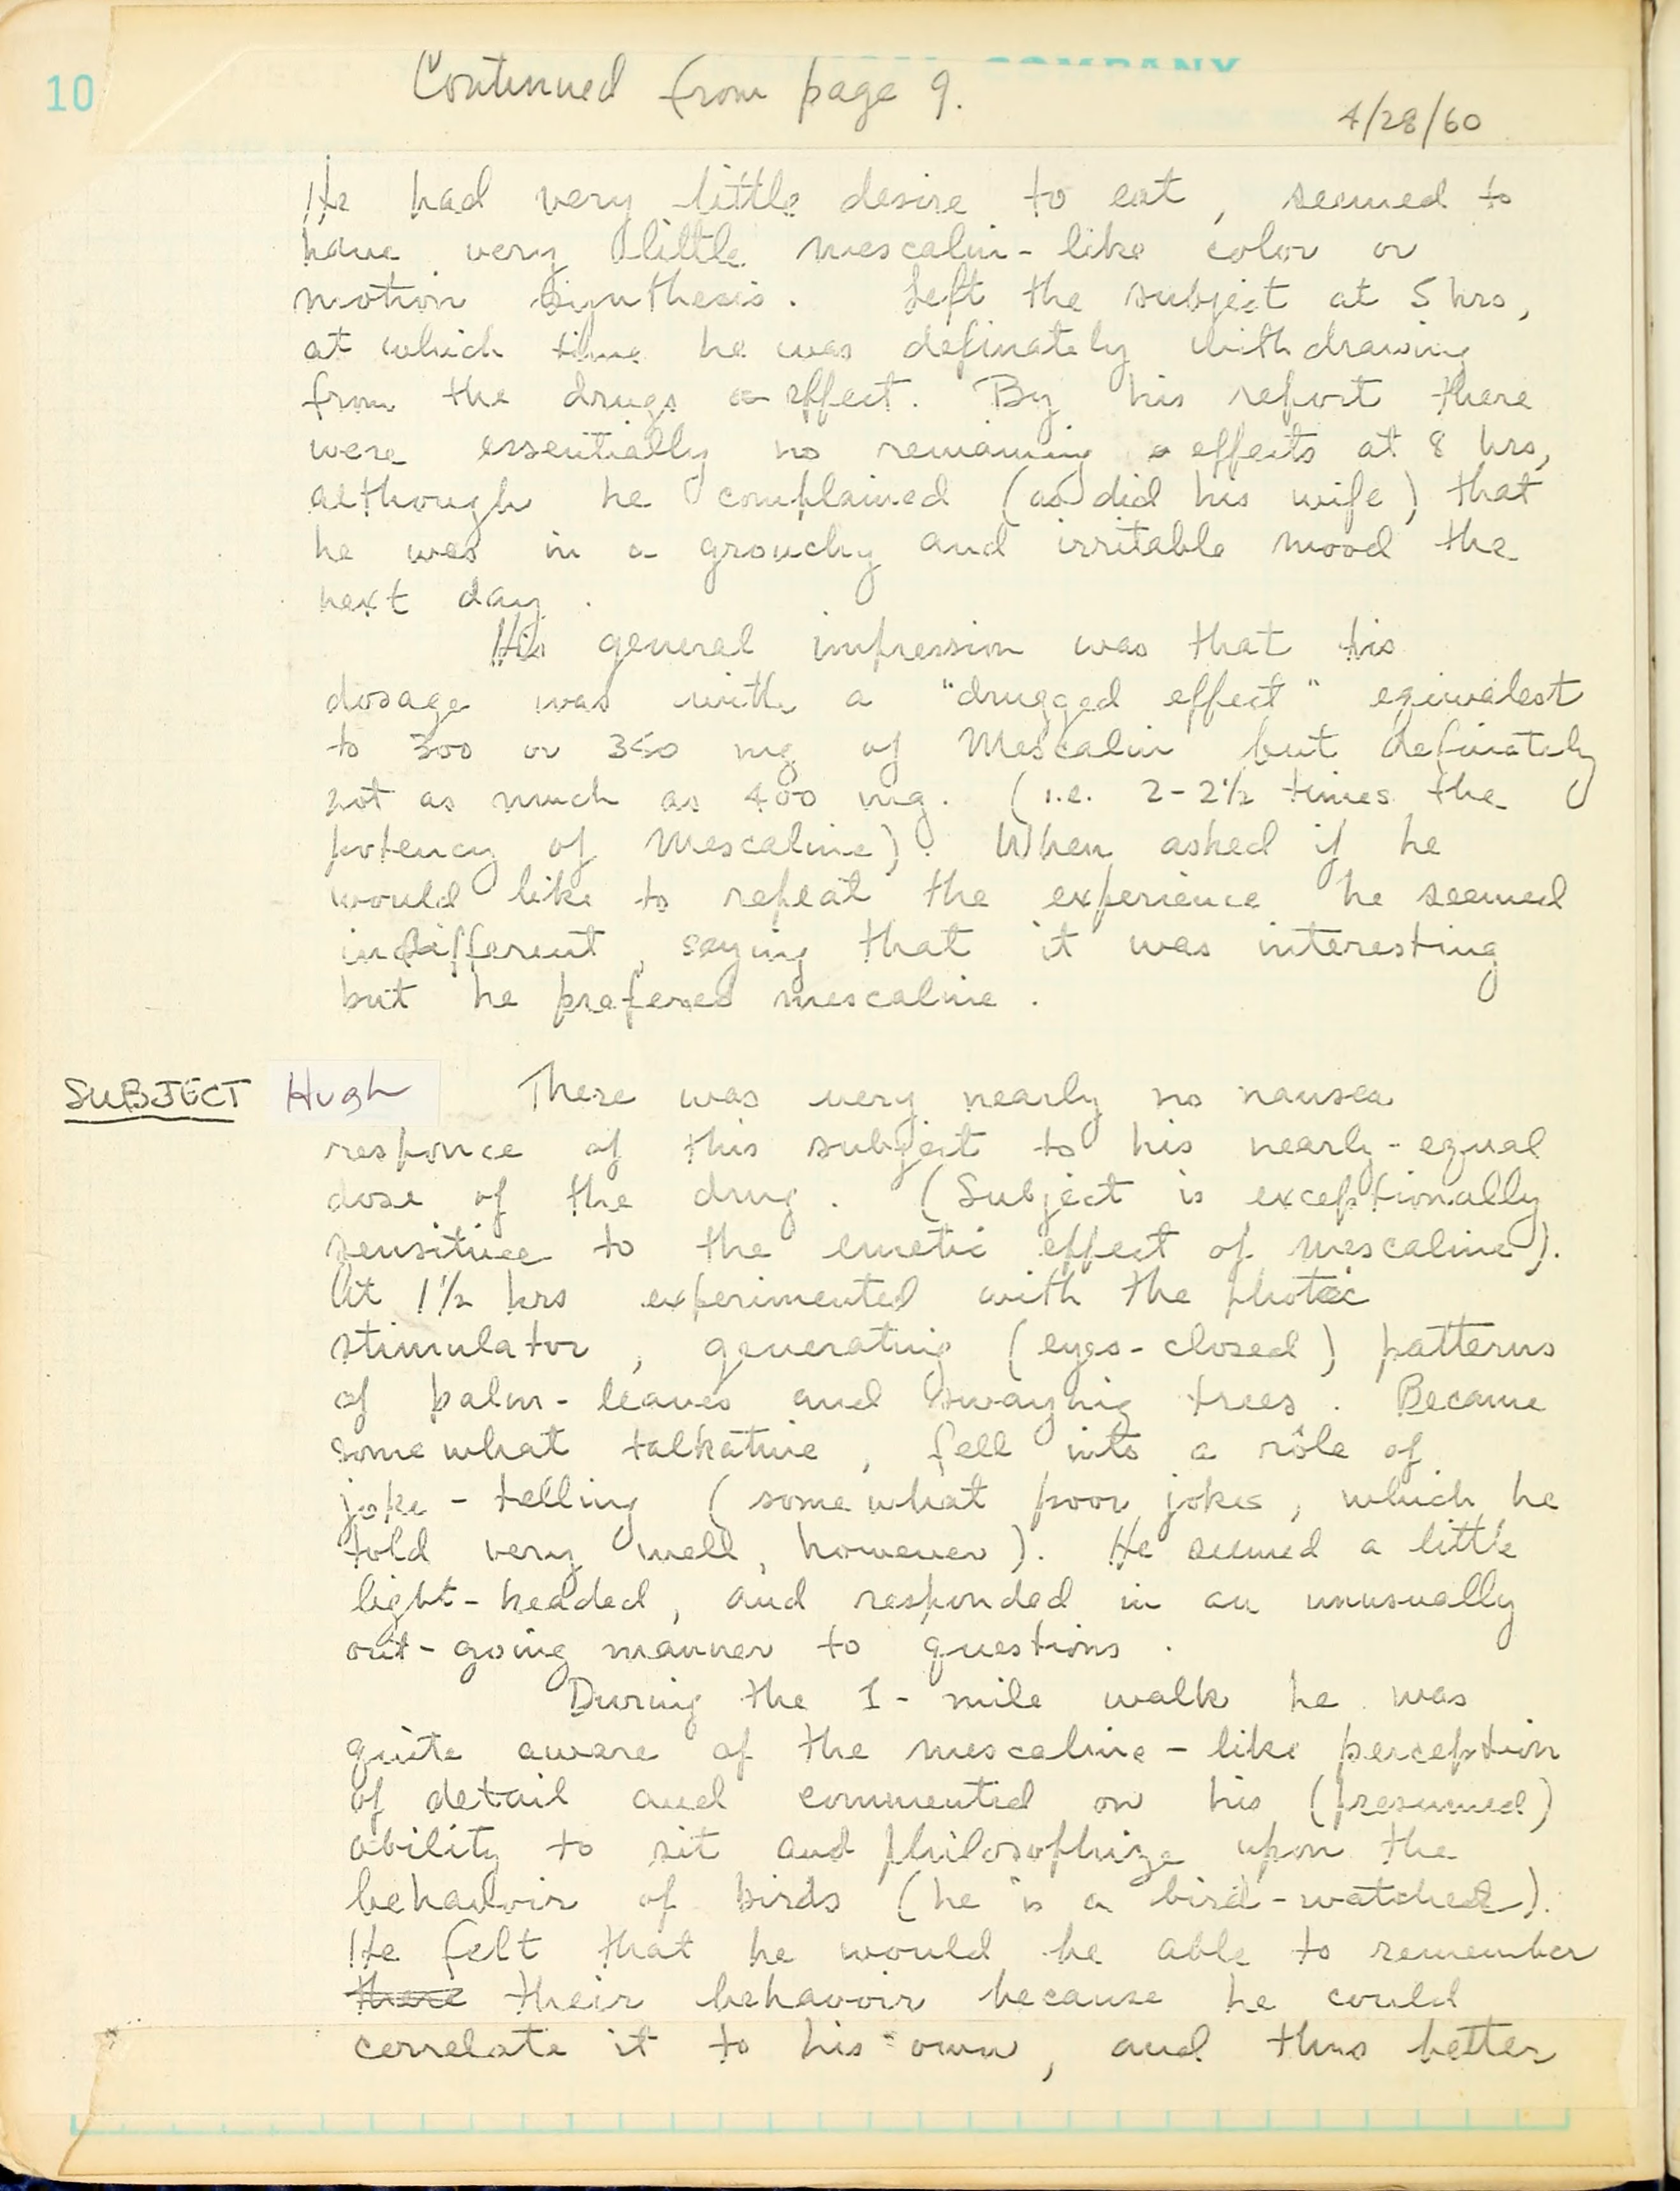 10
COMPANY
Continued from page 9.
4/28/60
He had very little desire to eat, seemed to
have very little mescalin-like color or
motion synthesis. Left the subject at 5 hrs,
at which time he was definately withdrawing
from the drugs effect. By his report there
were essentially no remaining effects at 8 hrs,
although he complained (as did his wife) that
he was in a grouchy and irritable mood the
next day.
His general impression was that his
dosage was with a "drugged effect" equivalent
to 300 or 350 mg of Mescalin but definately
not as much as 400 mg. (i.e. 2-2½ times the
potency of Mescaline). When asked if he
would like to repeat the experience he seemed
indifferent, saying that it was interesting
but he prefered mescaline.
SUBJECT Hugh There was very nearly no nausea
responce of this subject to his nearly-equal
dose of the drug. (Subject is exceptionally
sensitive to the emetic effect of mescaline).
At 1½ hrs experimented with the photic
stimulator, generating (eyes-closed) patterns
of palm-leaves and swaying trees. Became
somewhat talkative, fell into a rôle of
joke-telling (somewhat poor jokes, which he
told very well, however). He seemed a little
light-headed, and responded in an unusually
out-going manner to questions.
During the 1-mile walk he was
quite aware of the mescaline-like perception
of detail and commented on his (presumed)
ability to sit and philosophize upon the
behavoir of birds (he is a bird-watcher).
He felt that he would be able to remember
there their behavoir because he could
correlate it to his own, and thus better